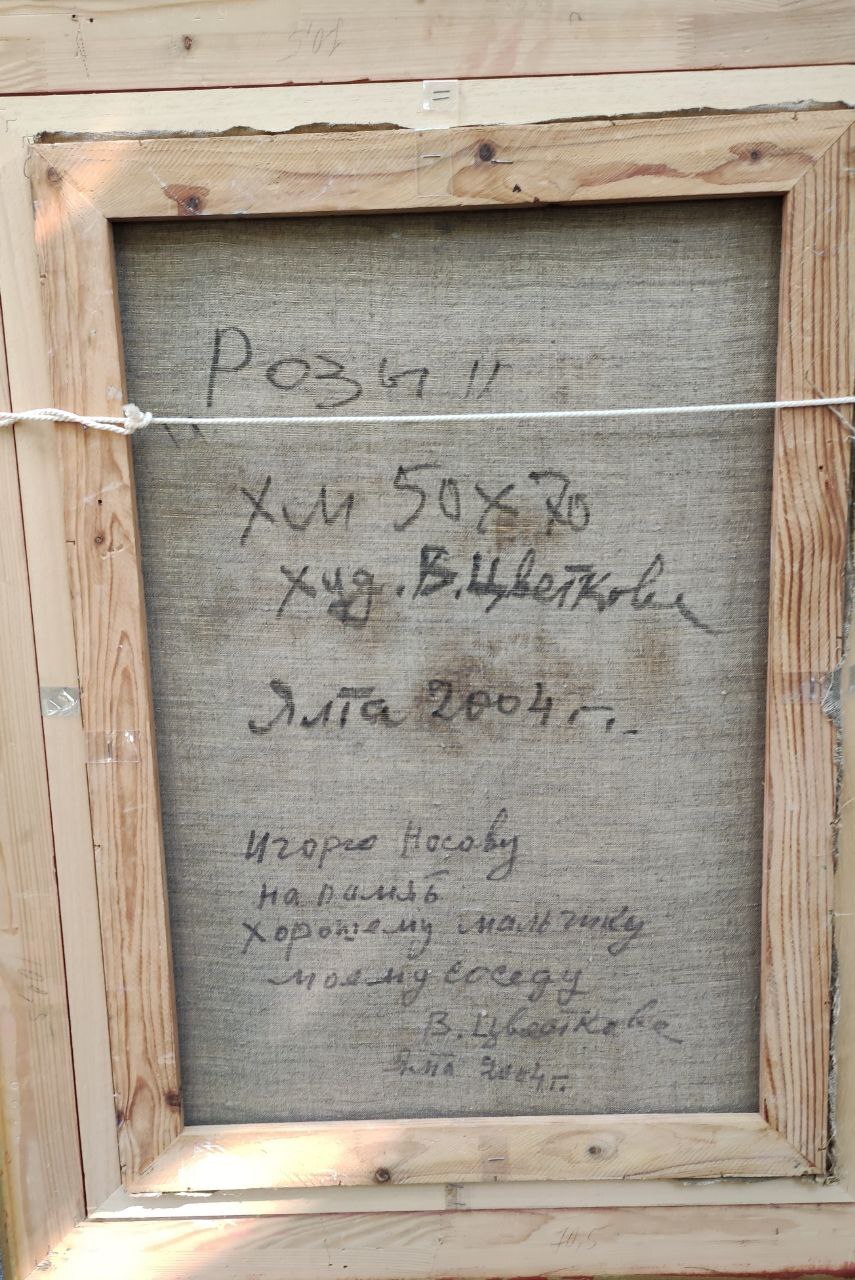 10,5
"Розы"
ХМ 50х70
худ. В. Цветкова
Ялта 2004 г.
Игорю Носову
на память
хорошему мальчику
моему соседу
В. Цветкова
Ялта 2004 г.
70,5